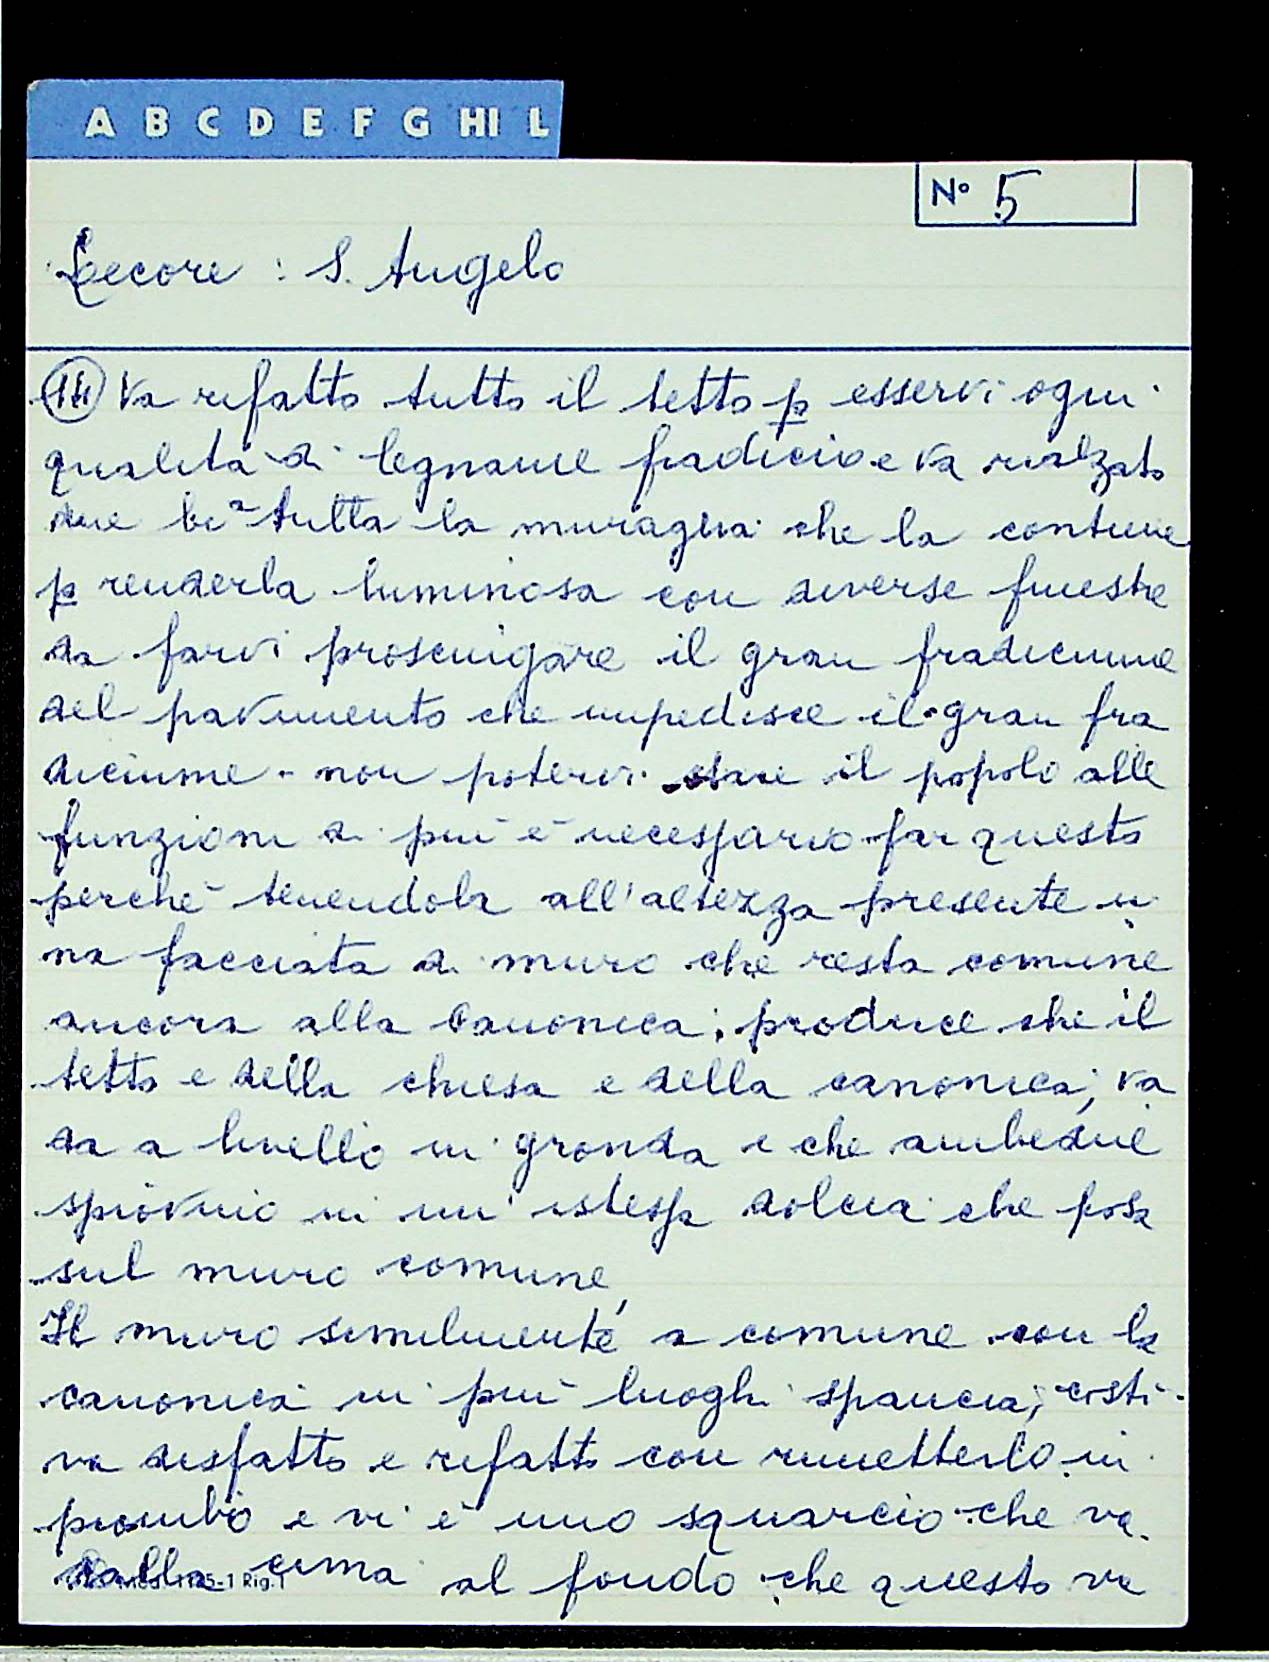 A B C D E F G HI L
N° 5
Lecore : S. Angelo
Va rifatto tutto il tetto p esservi ogni
qualità di legname fradicio e va rialzato
due bra tutta la muraglia che la contiene
p renderla luminosa con diverse finestre
da farvi prosciugare il gran fradiciume
del pavimento che impedisce il gran fra
diciume - non potervi stare il popolo alle
funzioni di più è necessario far questo
perché tenendola all'altezza presente u
na facciata di muro che resta comune
ancora alla Canonica; produce che il
tetto e della chiesa e della canonica, va
da a livello in gronda e che ambedue
spiovino in un' istessa dolcia che posa
sul muro comune,
Il muro similmente a comune con la
canonica in più luoghi spancia, costi
va disfatto e rifatto con rimetterlo in
piombo e vi è uno squarcio che va
dalla cima al fondo che questo va
-1 Rig.1